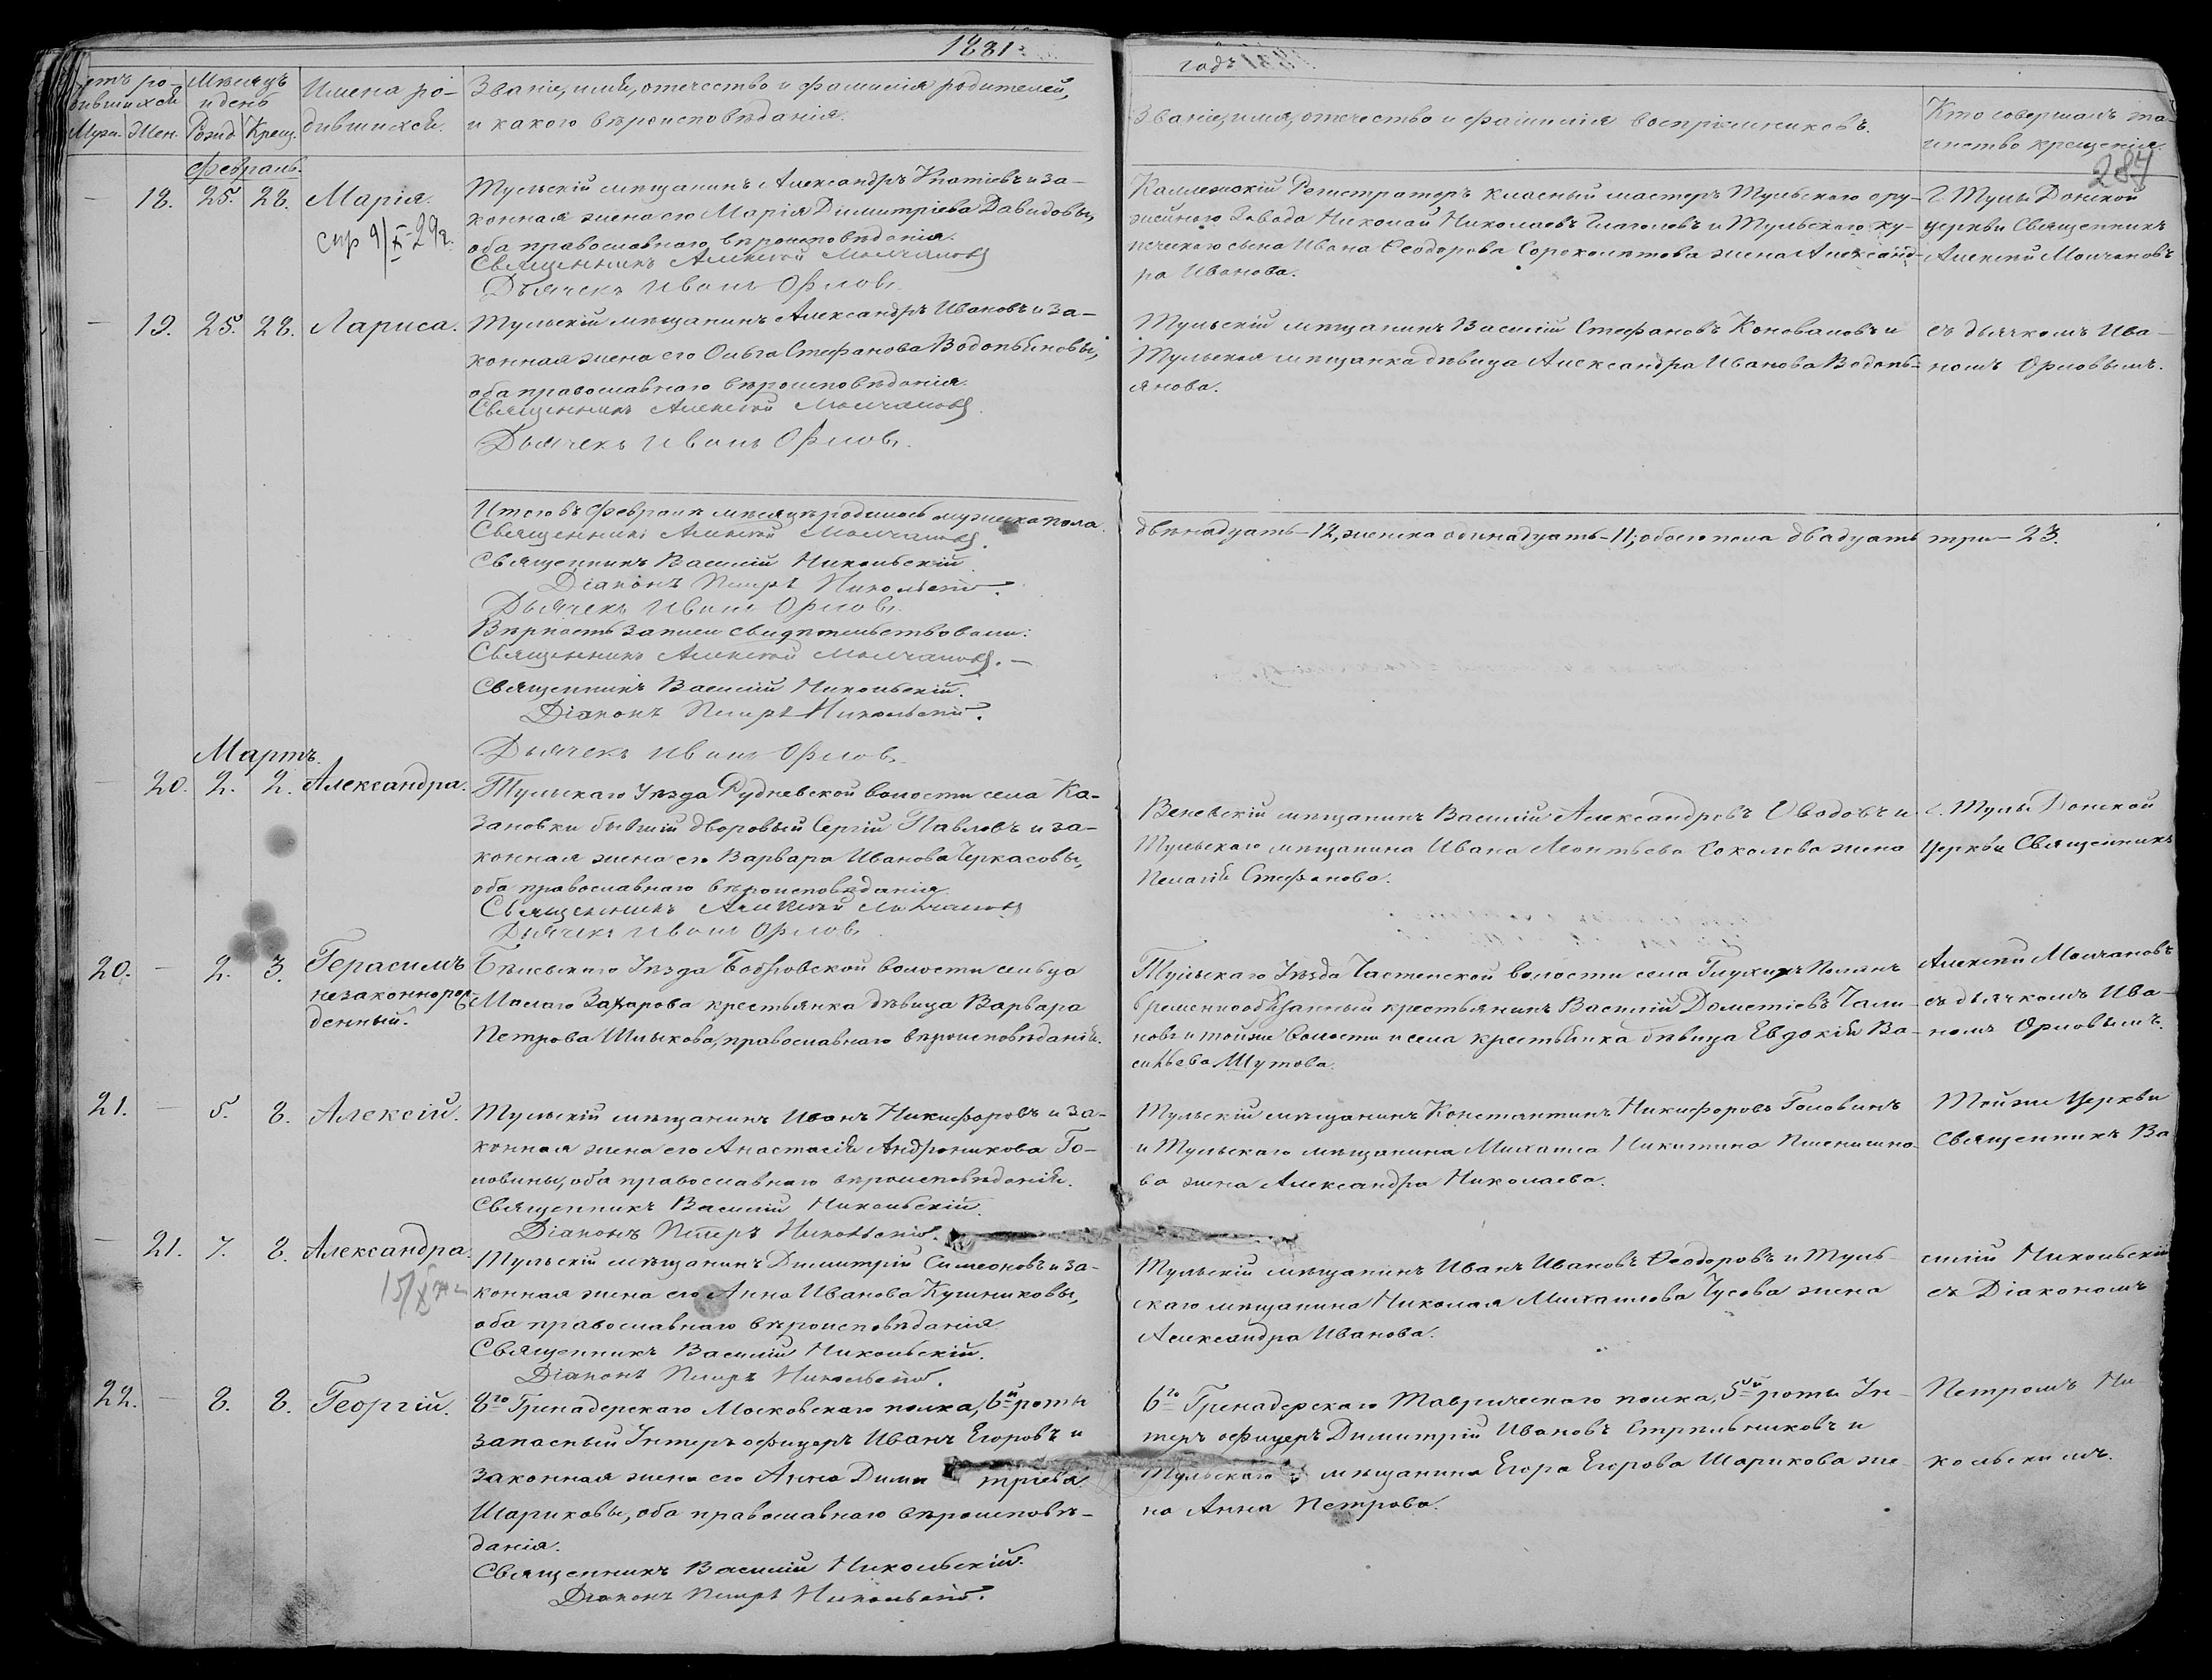 1881
годъ
Счетъ ро-
дившихся
Муж. Жен.
Мѣсяцъ
и день
Рожд. Крещ.
Имена ро-
дившихся.
Званіе, имя, отчество и фамилія родителей,
и какого вѣроисповѣданія.
Званіе, имя, отчество и фамилія воспріемниковъ.
Кто совершалъ та-
инство крещенія.
287
Февраль.
— 18. 25. 28. Марія.
Тульскій мѣщанинъ Александръ Ипатіевъ и за-
конная жена его Марія Димитріева Давидовы,
оба православнаго вѣроисповѣданія.
Священникъ Алексій Молчановъ
Дьячекъ Иванъ Орловъ
Коллежскій Регистраторъ класный мастеръ Тульскаго ору-
жейнаго Завода Николай Николаевъ Глаголевъ и Тульскаго ку-
печескаго сына Ивана Ѳеодорова Сороколѣтова жена Александ-
ра Иванова.
Г. Тулы Донской
церкви Священникъ
Алексій Молчановъ
— 19. 25. 28. Лариса.
Тульскій мѣщанинъ Александръ Ивановъ и за-
конная жена его Ольга Стефанова Водопьяновы,
оба православнаго вѣроисповѣданія.
Священникъ Алексій Молчановъ
Дьячекъ Иванъ Орловъ.
Тульскій мѣщанинъ Василій Стефановъ Коноваловъ и
Тульская мѣщанка дѣвица Александра Иванова Водопь-
янова.
съ дьячкомъ Ива-
номъ Орловымъ.
Итого въ Февралѣ мѣсяцѣ родилось мужеска пола
двѣнадцать—12, женска одинадцать—11; обоего пола двадцать три—23.
Священникъ Алексій Молчановъ.
Священникъ Василій Никольскій
Діаконъ Петръ Никольскій.
Дьячекъ Иванъ Орловъ.
Вѣрность записи свидѣтельствовали:
Священникъ Алексій Молчановъ.—
Священникъ Василій Никольскій.
Діаконъ Петръ Никольскій.
Дьячекъ Иванъ Орловъ.
Мартъ.
— 20. 2. 2. Александра.
Тульскаго Уѣзда Рудневской волости села Ка-
зановки бывшій дворовый Сергій Павловъ и за-
конная жена его Варвара Иванова Черкасовы,
оба православнаго вѣроисповѣданія.
Священникъ Алексій Молчановъ
Дьячекъ Иванъ Орловъ
Веневскій мѣщанинъ Василій Александровъ Оводовъ и
Тульскаго мѣщанина Ивана Леонтьева Соколова жена
Пелагія Стефанова.
г. Тулы Донской
Церкви Священникъ
20. — 2. 3. Герасимъ
незаконнорож-
денный.
Бѣлевскаго Уѣзда Бобровской волости сельца
Малаго Захарова крестьянка дѣвица Варвара
Петрова Шлыкова, православнаго вѣроисповѣданія.
Тульскаго Уѣзда Частенской волости села Глухихъ Полянъ
временнообязанный крестьянинъ Василій Дометіевъ Чали-
новъ и тойже волости и села крестьянка дѣвица Евдокія Ва-
сильева Шутова.
Алексій Молчановъ
съ дьячкомъ Ива-
номъ Орловымъ.
21. — 5. 8. Алексій.
Тульскій мѣщанинъ Иванъ Никифоровъ и за-
конная жена его Анастасія Андроникова Го-
ловины, оба православнаго вѣроисповѣданія.
Священникъ Василій Никольскій.
Діаконъ Петръ Никольскій.
Тульскій мѣщанинъ Константинъ Никифоровъ Головинъ
и Тульскаго мѣщанина Михаила Никитина Пшенишно-
ва жена Александра Николаева.
Тойже Церкви
Священникъ Ва
— 21. 7. 8. Александра.
Тульскій мѣщанинъ Димитрій Симеоновъ и за-
конная жена его Анна Иванова Кушниковы,
оба православнаго вѣроисповѣданія.
Священникъ Василій Никольскій.
Діаконъ Петръ Никольскій.
Тульскій мѣщанинъ Иванъ Ивановъ Ѳеодоровъ и Туль
скаго мѣщанина Николая Михаилова Гусева жена
Александра Иванова.
силій Никольскій
съ Діакономъ
22. — 8. 8. Георгій.
8го Гренадерскаго Московскаго полка, 6й роты
запасный Унтеръ офицеръ Иванъ Егоровъ и
законная жена его Анна Дими тріева
Шариковы, оба православнаго вѣроисповѣ-
данія.
Священникъ Василій Никольскій.
Діаконъ Петръ Никольскій.
6го Гренадерскаго Таврическаго полка, 5ой роты Ун-
теръ офицеръ Димитрій Ивановъ Стрѣльниковъ и
Тульскаго мѣщанина Егора Егорова Шарикова же-
на Анна Петрова.
Петромъ Ни-
кольскимъ.